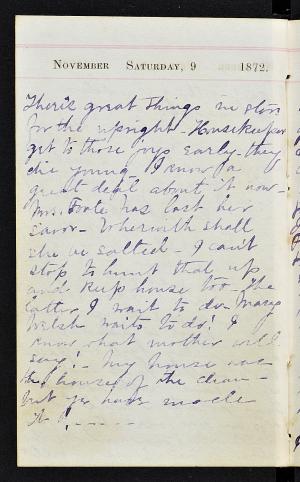 November Saturday, 9 1872.
There's great things in store
for the upright - Housekeepers
get to those joys early - they
die young. I know a
great deal about it now -
Mrs. Foote has lost her
savor - Wherewith shall
she be salted - I can't
stop to hunt that up
and keep house too. The
latter I wait to do. Mary
Welsh waits to do! I
know what mother will
say! - My house was
the house of the
but ye have made
it